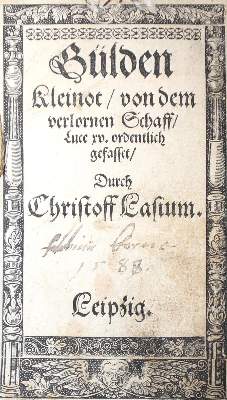 Gülden
Kleinot / von dem
verlornen Schaff /
Luce xv. ordentlich
gefasset /
Durch
Christoff Lasium.
1588.
Leipzig.